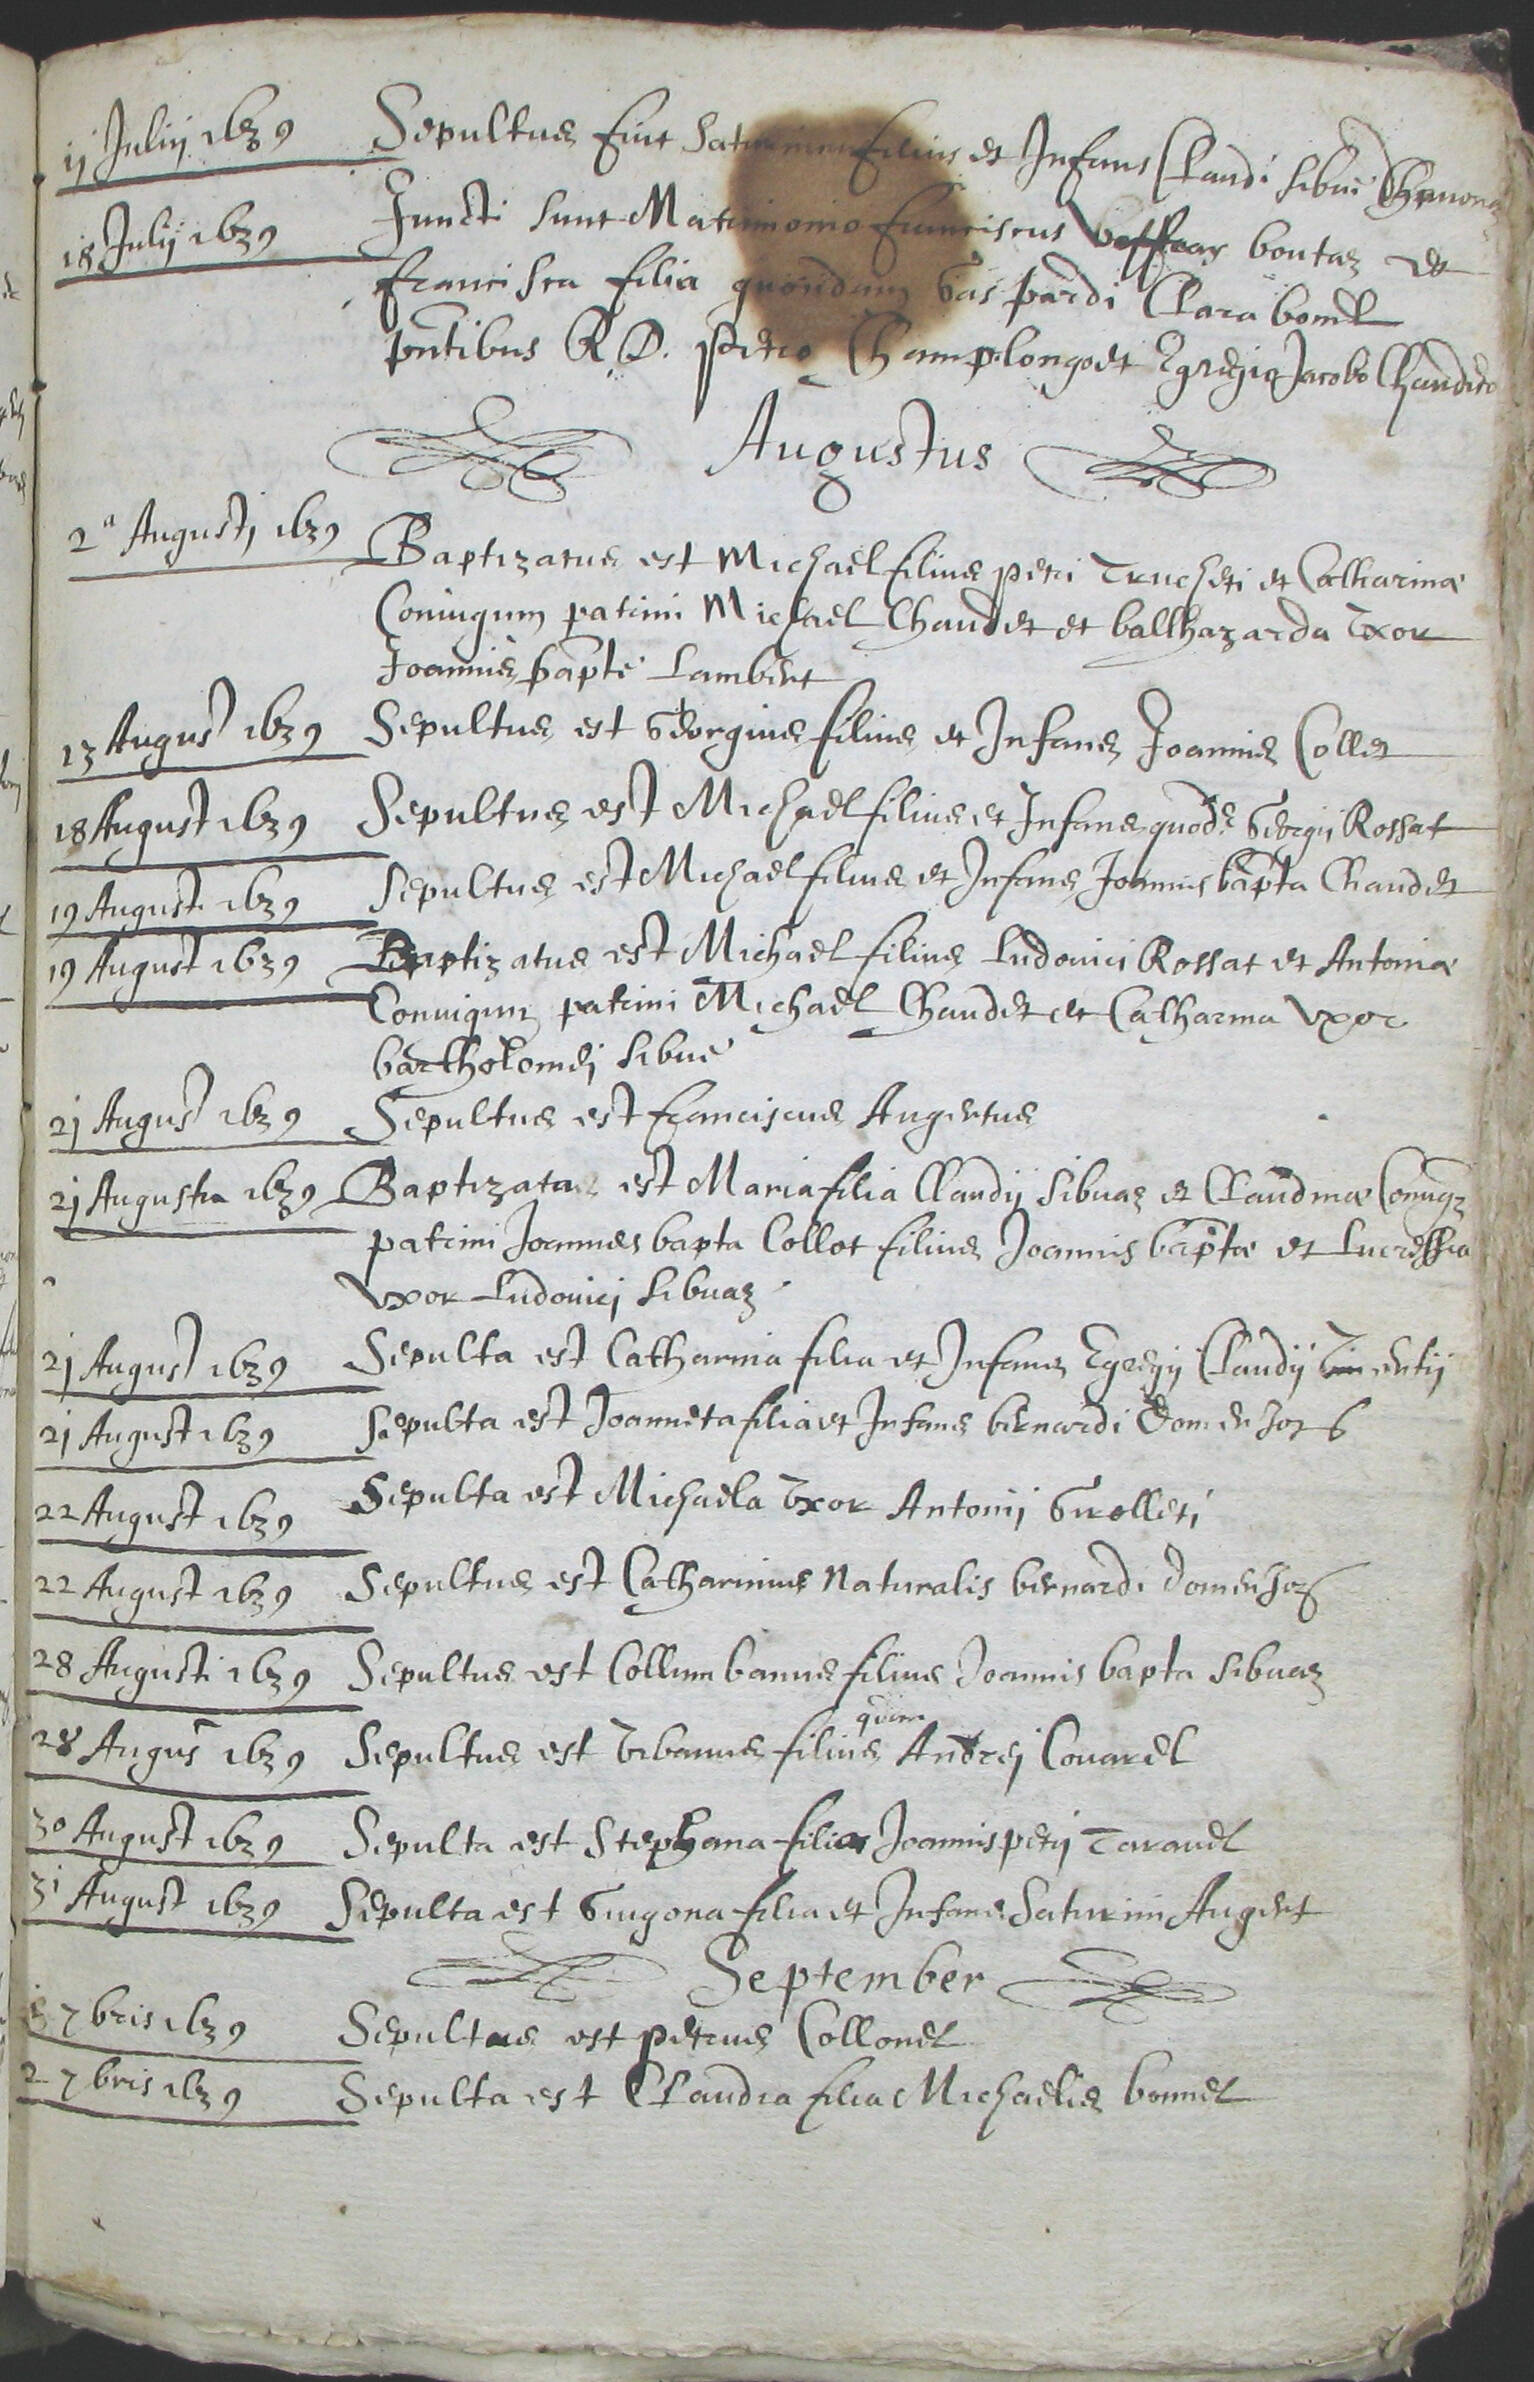 ij Julij 1639 Sepultus fuit Saturninus filius et Infans Claudi Sibue
18 Julij 1639 Juncti sunt Matrimonio Franciscus boutaz et
Francisca filia quondam Gaspardi Clara bomel
pntibus R D. petro Champlongo et Egregio Jacobo Chaudeto
Augustus
2a Augusti 1639 Baptizatus est Michael filius petri Trucheti et Catharinæ
Coniugum patrini Michael Chaudet et balthazarda Vxor
Joannis bapte Lambert
13 August 1639 Sepultus est Georgius filius et Infans Joannis Collet
18 August 1639 Sepultus est Michael filius et Infans quod. Georgij Rossat
19 August 1639 Sepultus est Michael filius et Infans Joannis bapta Chaudet
19 August 1639 Baptizatus est Michael filius Ludovici Rossat et Antoniæ
Coniugum patrini Michael Chaudet et Catharina Vxor
bartholomej Sibue
21 August 1639 Sepultus est Franciscus Augertus
21 Augusti 1639 Baptizata est Maria filia Claudij Sibuaz et Claudinæ Coniugz
patrini Joannes bapta Collot filius Joannis baptæ et Lucressia
Vxor Ludovicj Sibuaz
21 August 1639 Sepulta est Catharina filia et Infans Egregij Claudij
21 August 1639 Sepulta est Joanneta filia et Infans bernardi Domenjoz
22 August 1639 Sepulta est Michaela Vxor Antonij Grolleti
22 August 1639 Sepultus est Catharinus Naturalis bernardi Domenjoz
28 Augusti 1639 Sepultus est Collumbanus filius Joannis bapta Sibuaz
28 Augus 1639 Sepultus est Vrbanus filius quon Andrej Couarel
30 August 1639 Sepulta est Stephana filia Joannis petrj Tarauel
31 August 1639 Sepulta est Guigona filia et Infans Saturnini Augert
September
7bris 1639 Sepultus est petrus Collonel
2 7bris 1639 Sepulta est Claudia filia Michaelis bonnel